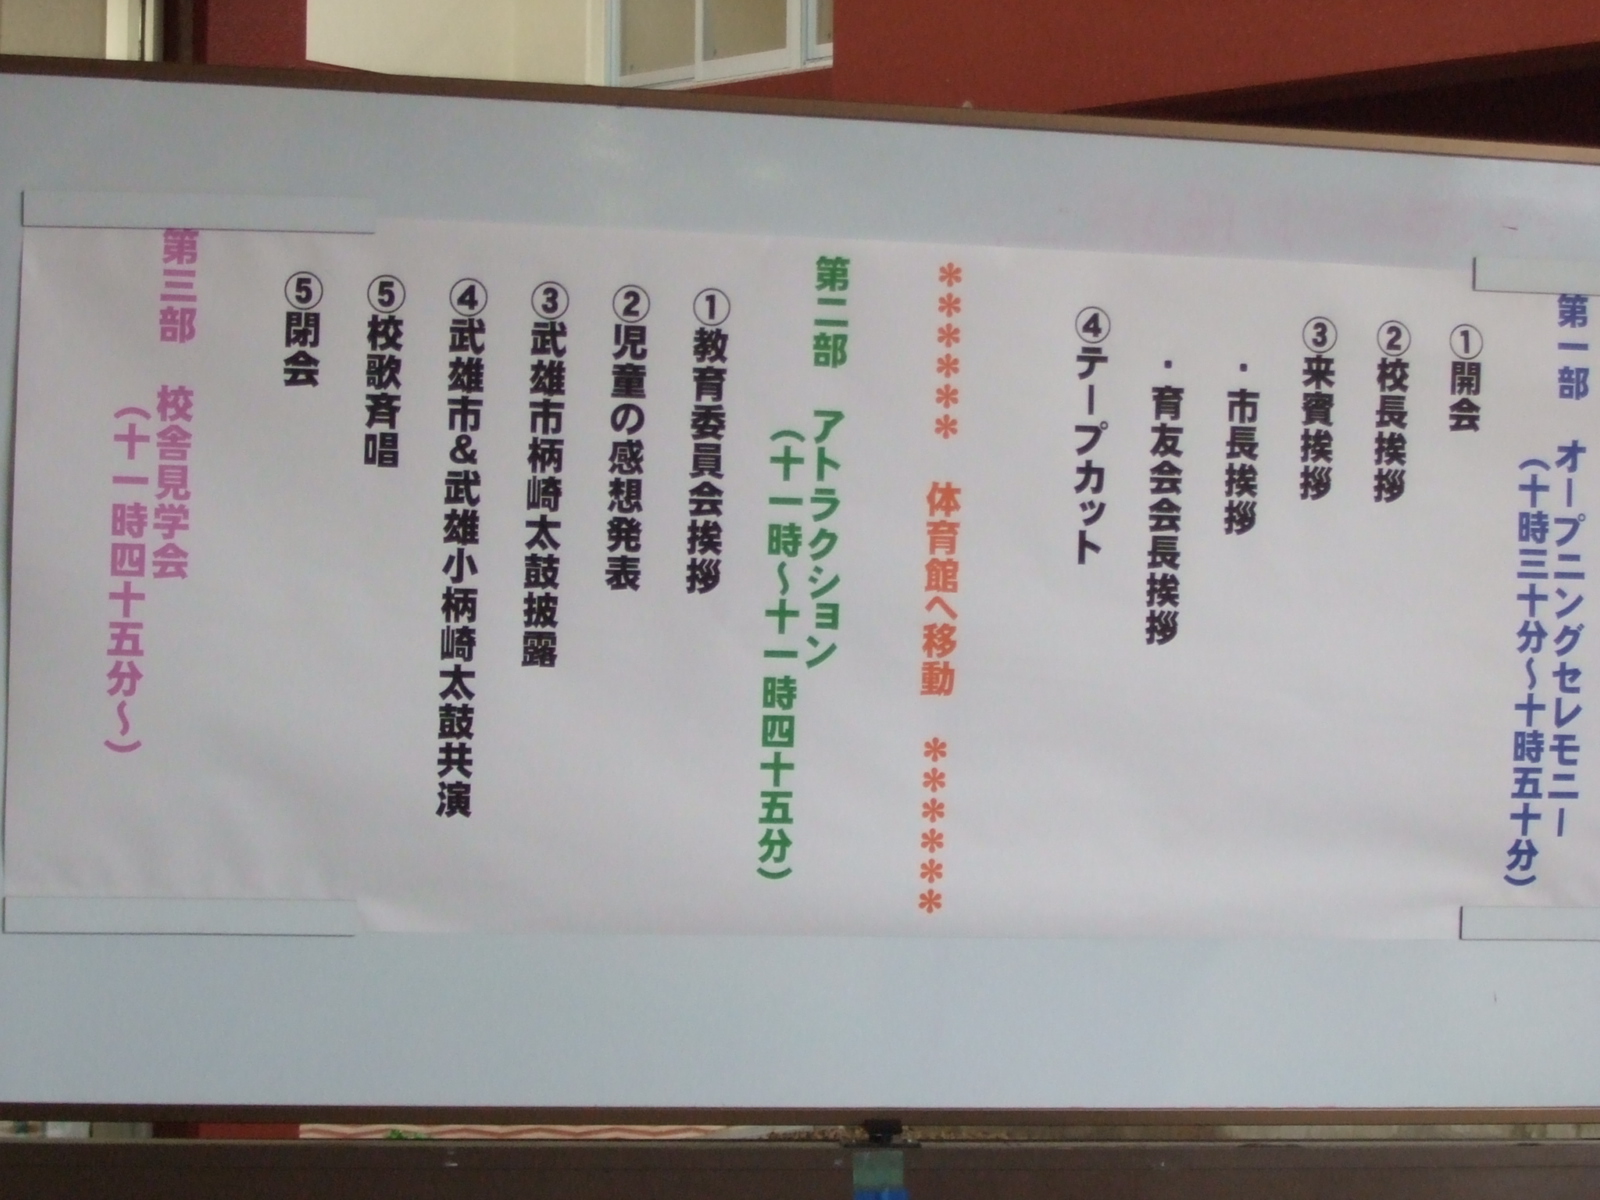 第一部　オープニングセレモニー
（十時三十分～十時五十分）
①開会
②校長挨拶
③来賓挨拶
・市長挨拶
・育友会会長挨拶
④テープカット
＊＊＊＊＊＊　体育館へ移動　＊＊＊＊＊＊
第二部　アトラクション
（十一時～十一時四十五分）
①教育委員会挨拶
②児童の感想発表
③武雄市柄崎太鼓披露
④武雄市&武雄小柄崎太鼓共演
⑤校歌斉唱
⑤閉会
第三部　校舎見学会
（十一時四十五分～）